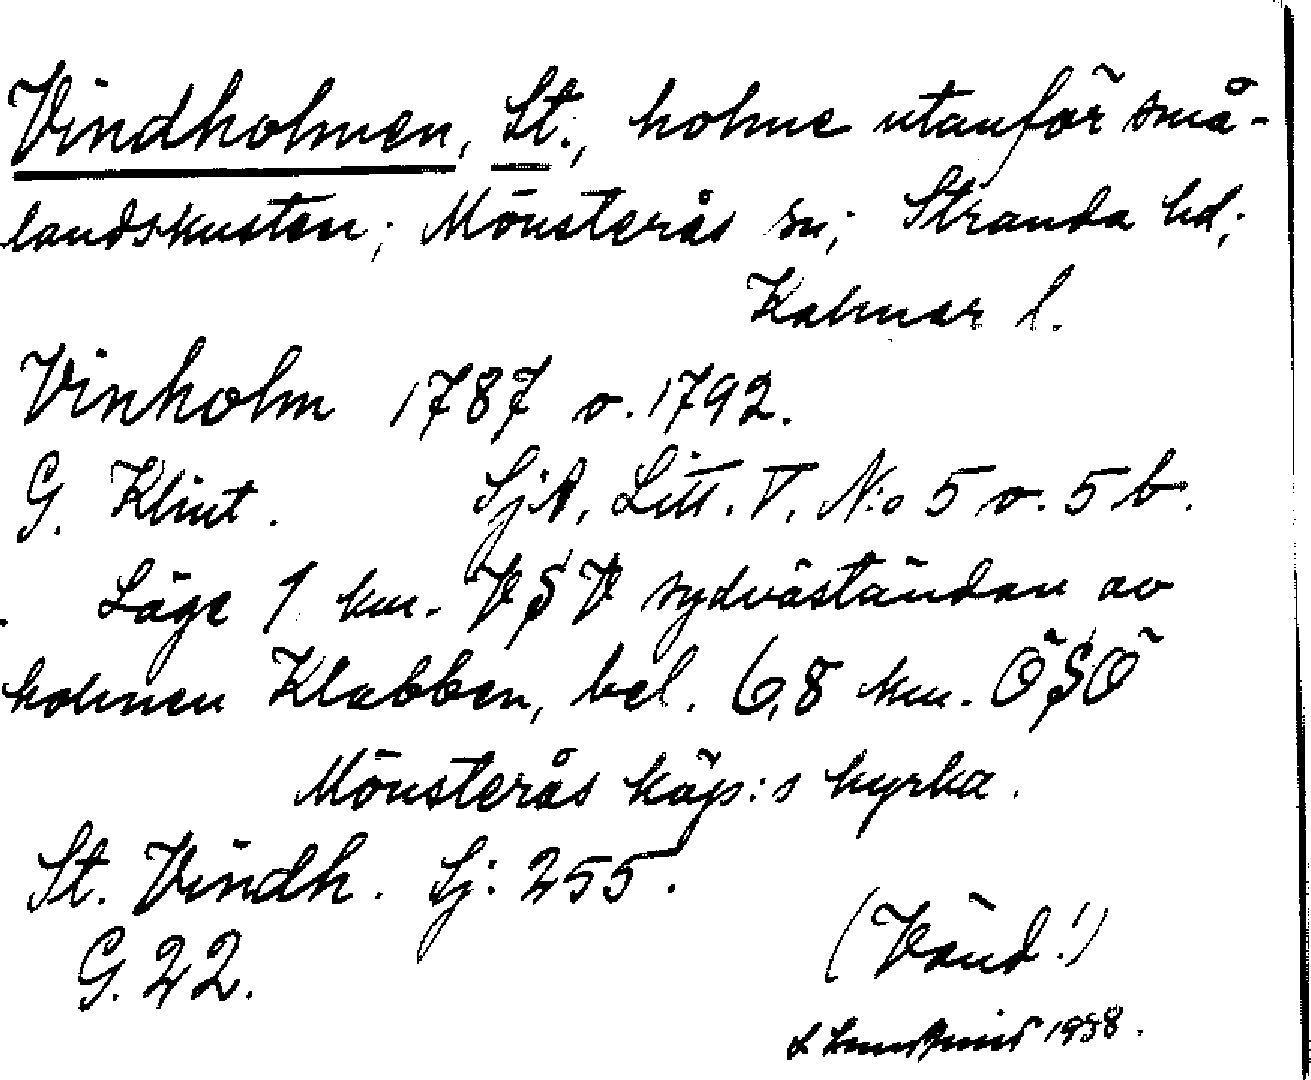 Vindholmen, St., holme utanför små-
landskusten; Mönsterås sn; Stranda hd;
Kalmar l.
Vinholm 1787 o. 1792.
G. Klint. SjA, Litt. T. N:o 5 o. 5 b.
Läge 1 km. VSV sydväständan av
holmen Klabben, bel. 6,8 km. ÖSÖ
Mönsterås köp:s kyrka.
St. Vindh. Sj: 255.
G. 22.
(Vänd!)
1958.